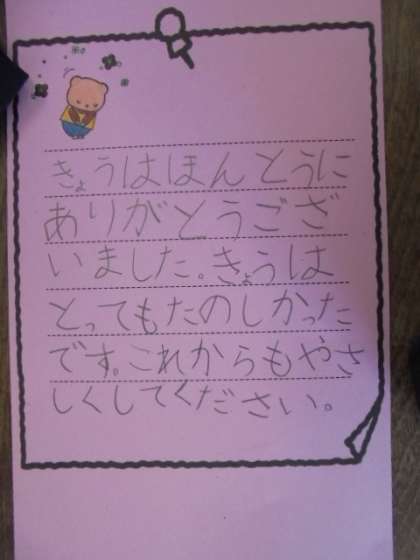 きょうはほんとうに
ありがとうござ
いました。きょうは
とってもたのしかった
です。これからもやさ
しくしてください。